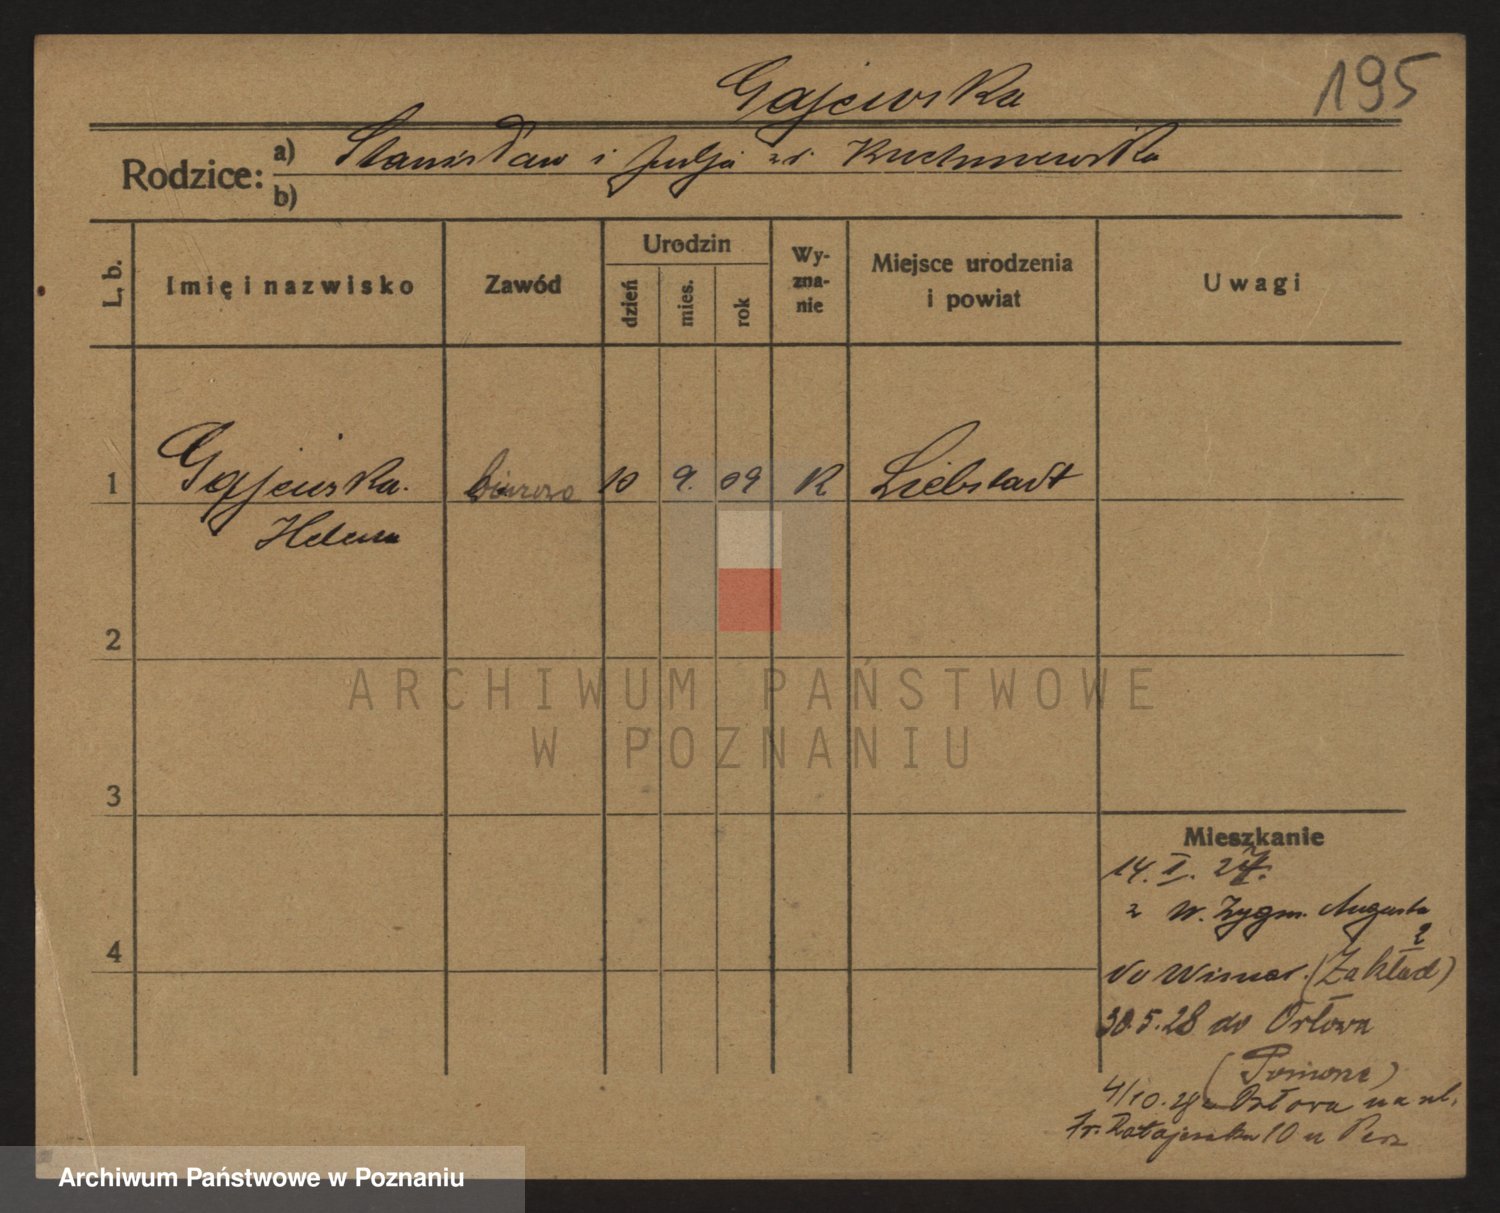 195
Gajewska
Rodzice:
a) Stanisław i Julja zd. Kuchniewska
b)
L. b.
Imię i nazwisko
Zawód
Urodzin
dzień
mies.
rok
Wy-
zna-
nie
Miejsce urodzenia
i powiat
Uwagi
1 Gajewska. biurowa 10 9. 09 R Liebstadt
Helena
2
3
4
Mieszkanie
14. I. 27.
z W. Zygm. Augusta
2
(Zakład)
30.5.28 do Orłowa
(Pomorze)
4/10.28 z Orłowa na ul.
Fr. Ratajczaka 10 u
ARCHIWUM PAŃSTWOWE
W POZNANIU
Archiwum Państwowe w Poznaniu